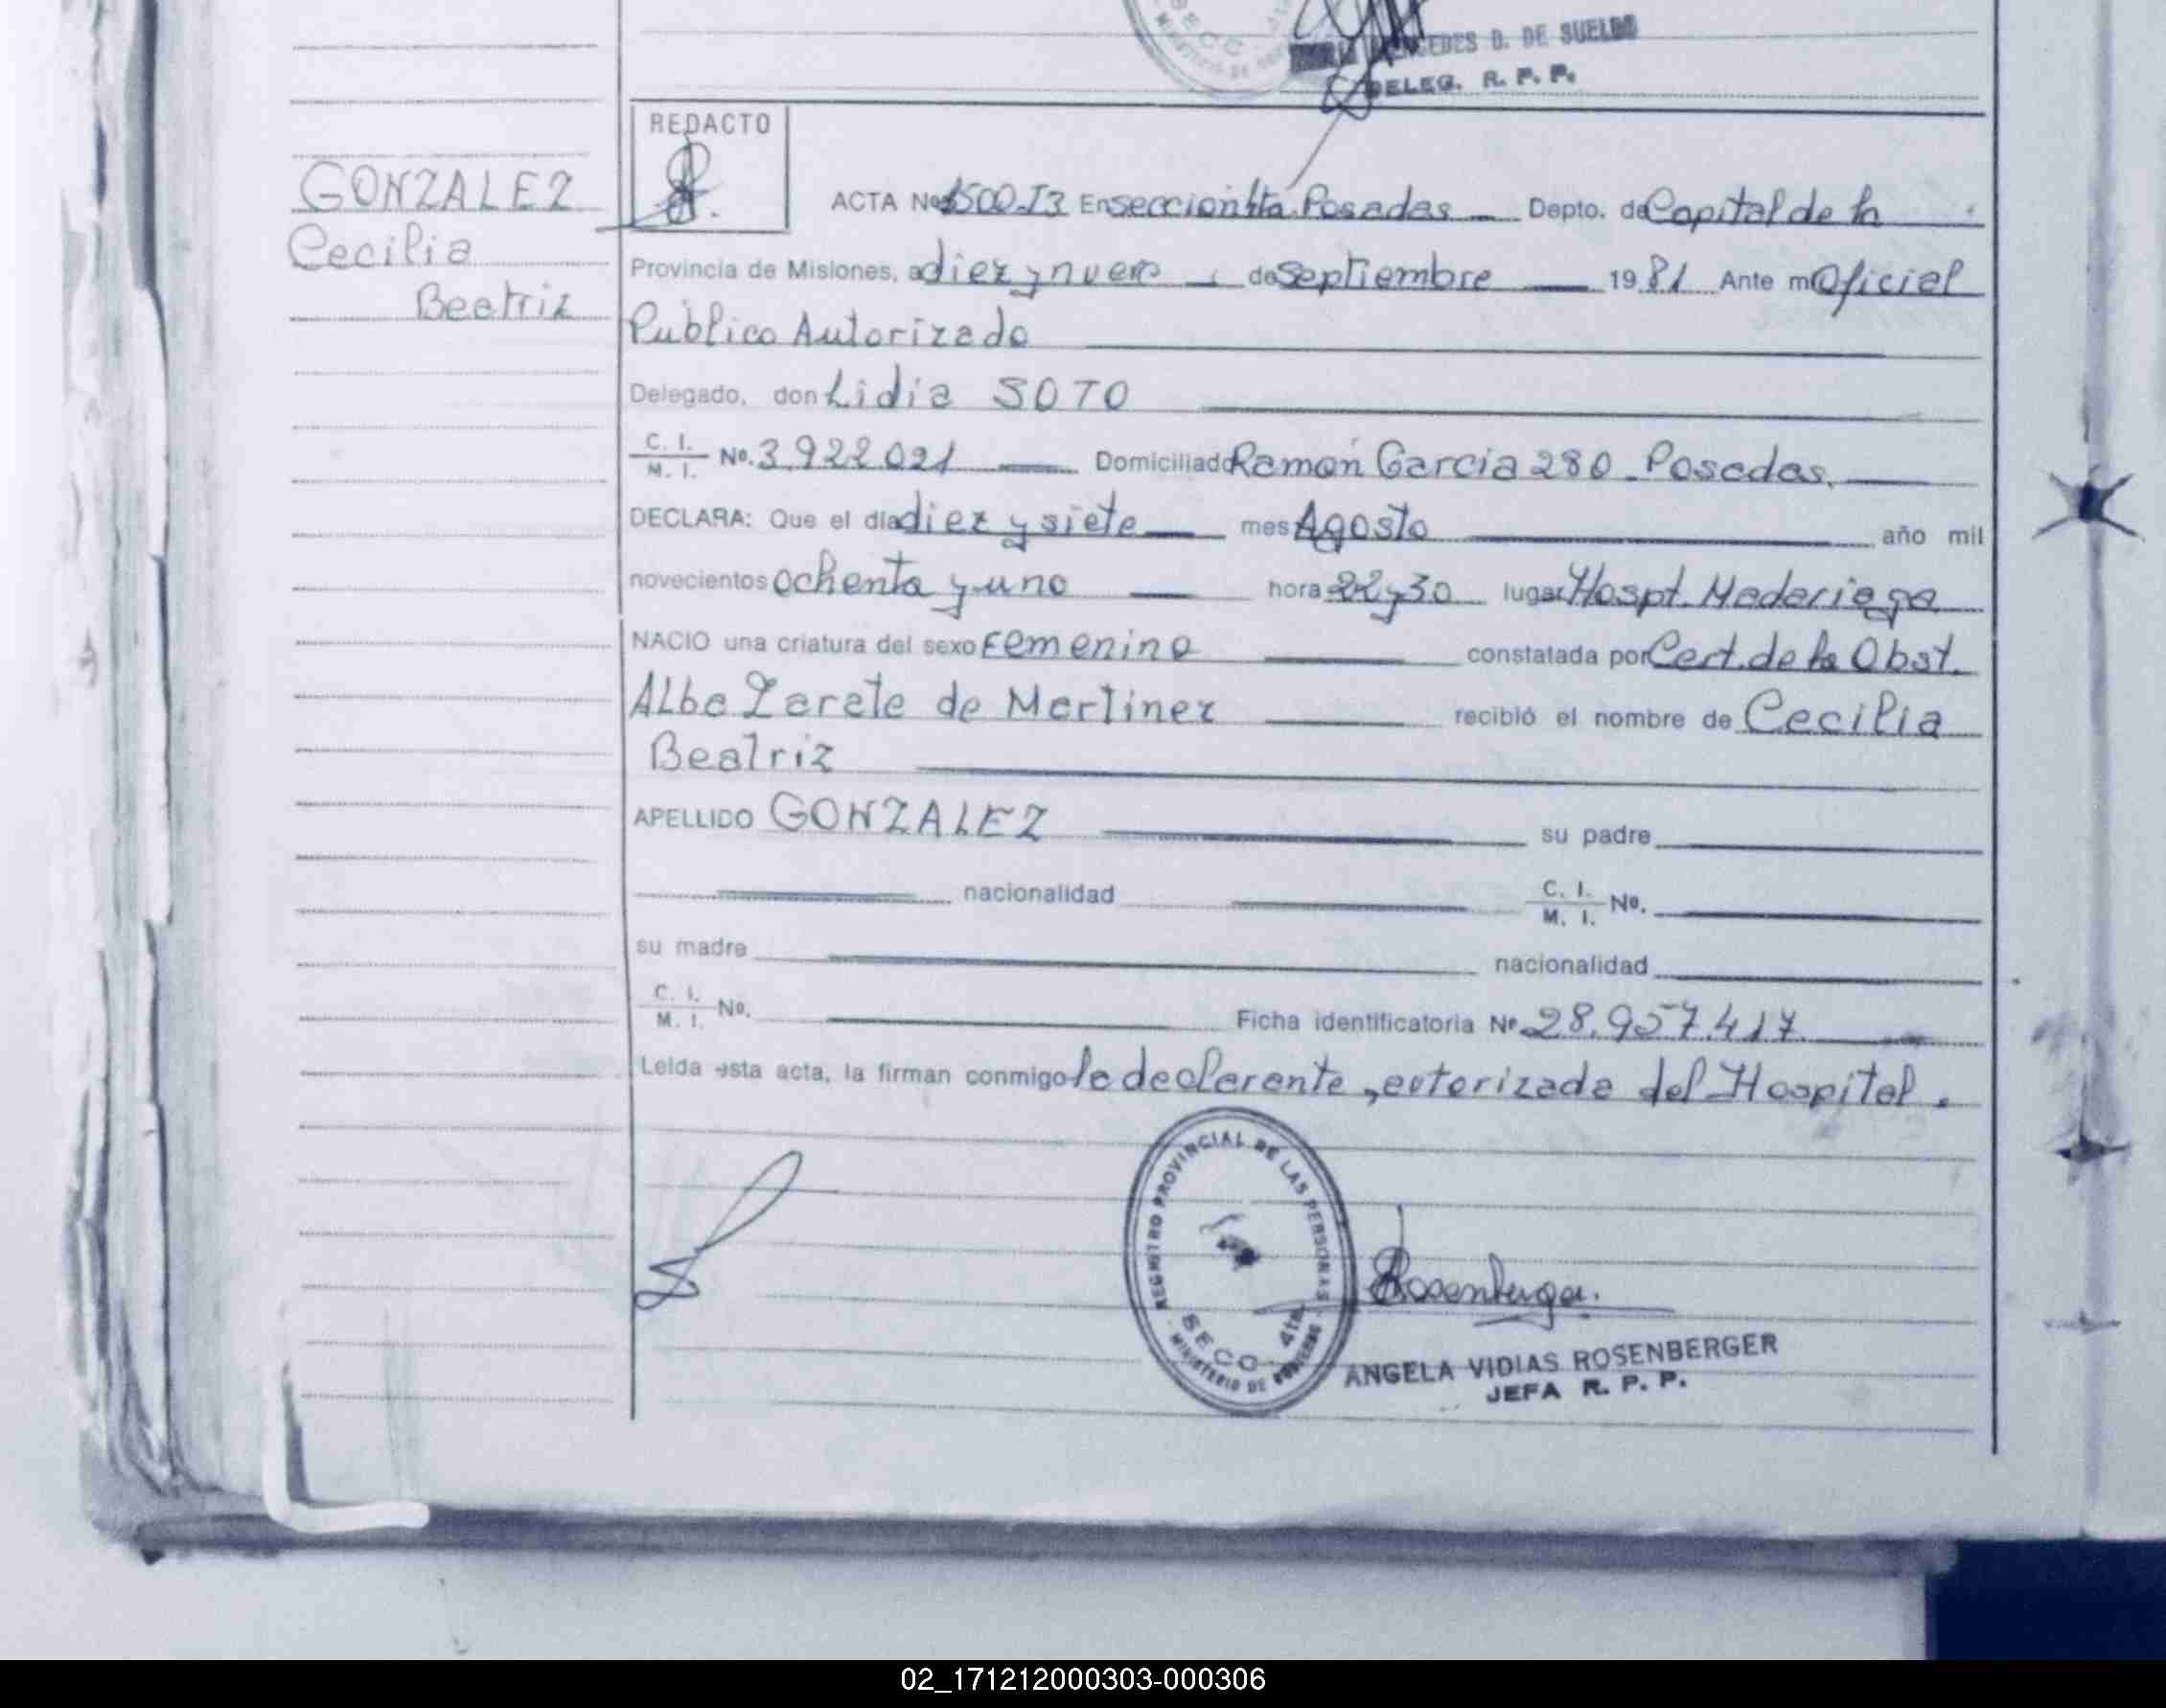 MERCEDES D. DE SUELDO
DELEG. R. P. P.
REDACTO
GONZALEZ
Cecilia
Beatriz
ACTA Nº 1500-I3 En sección 4ta. Posadas Depto. de Capital de la
Provincia de Misiones, a diez y nueve de Septiembre 1981 Ante mi Oficial
Publico Autorizado
Delegado, don Lidia SOTO
C. I. / M. I. Nº. 3.922.021 Domiciliado Ramón Garcia 280 - Posadas.
DECLARA: Que el día diez y siete mes Agosto año mil
novecientos ochenta y uno hora 22 y 30 lugar Hospt. Madariaga
NACIO una criatura del sexo Femenino constatada por Cert. de la Obst.
Alba Zarate de Martinez recibió el nombre de Cecilia
Beatriz
APELLIDO GONZALEZ su padre
nacionalidad C. I. / M. I. Nº.
su madre nacionalidad
C. I. / M. I. Nº. Ficha identificatoria Nº 28.957.417
Leída esta acta, la firman conmigo la declarante, autorizada del Hospital.
REGISTRO PROVINCIAL DE LAS PERSONAS
SECC. 4ta
MINISTERIO DE GOBIERNO
Rosenberger.
ANGELA VIDIAS ROSENBERGER
JEFA R. P. P.
02_171212000303-000306